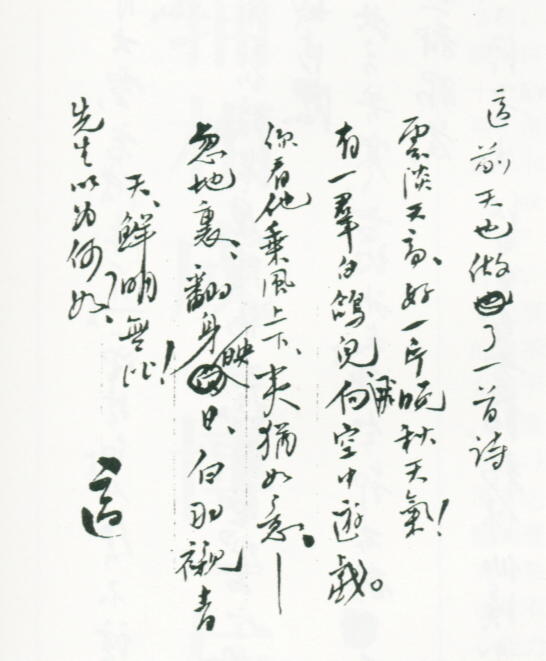 適前天也做了一首詩
雲淡天高、好一片晚秋天氣！
有一羣白鴿兒向空中遊戲。
你看他乘風上下、夷猶如意、—
忽地裏、翻身映日、白羽襯青
天、鮮明無比！
先生以爲何如？
適